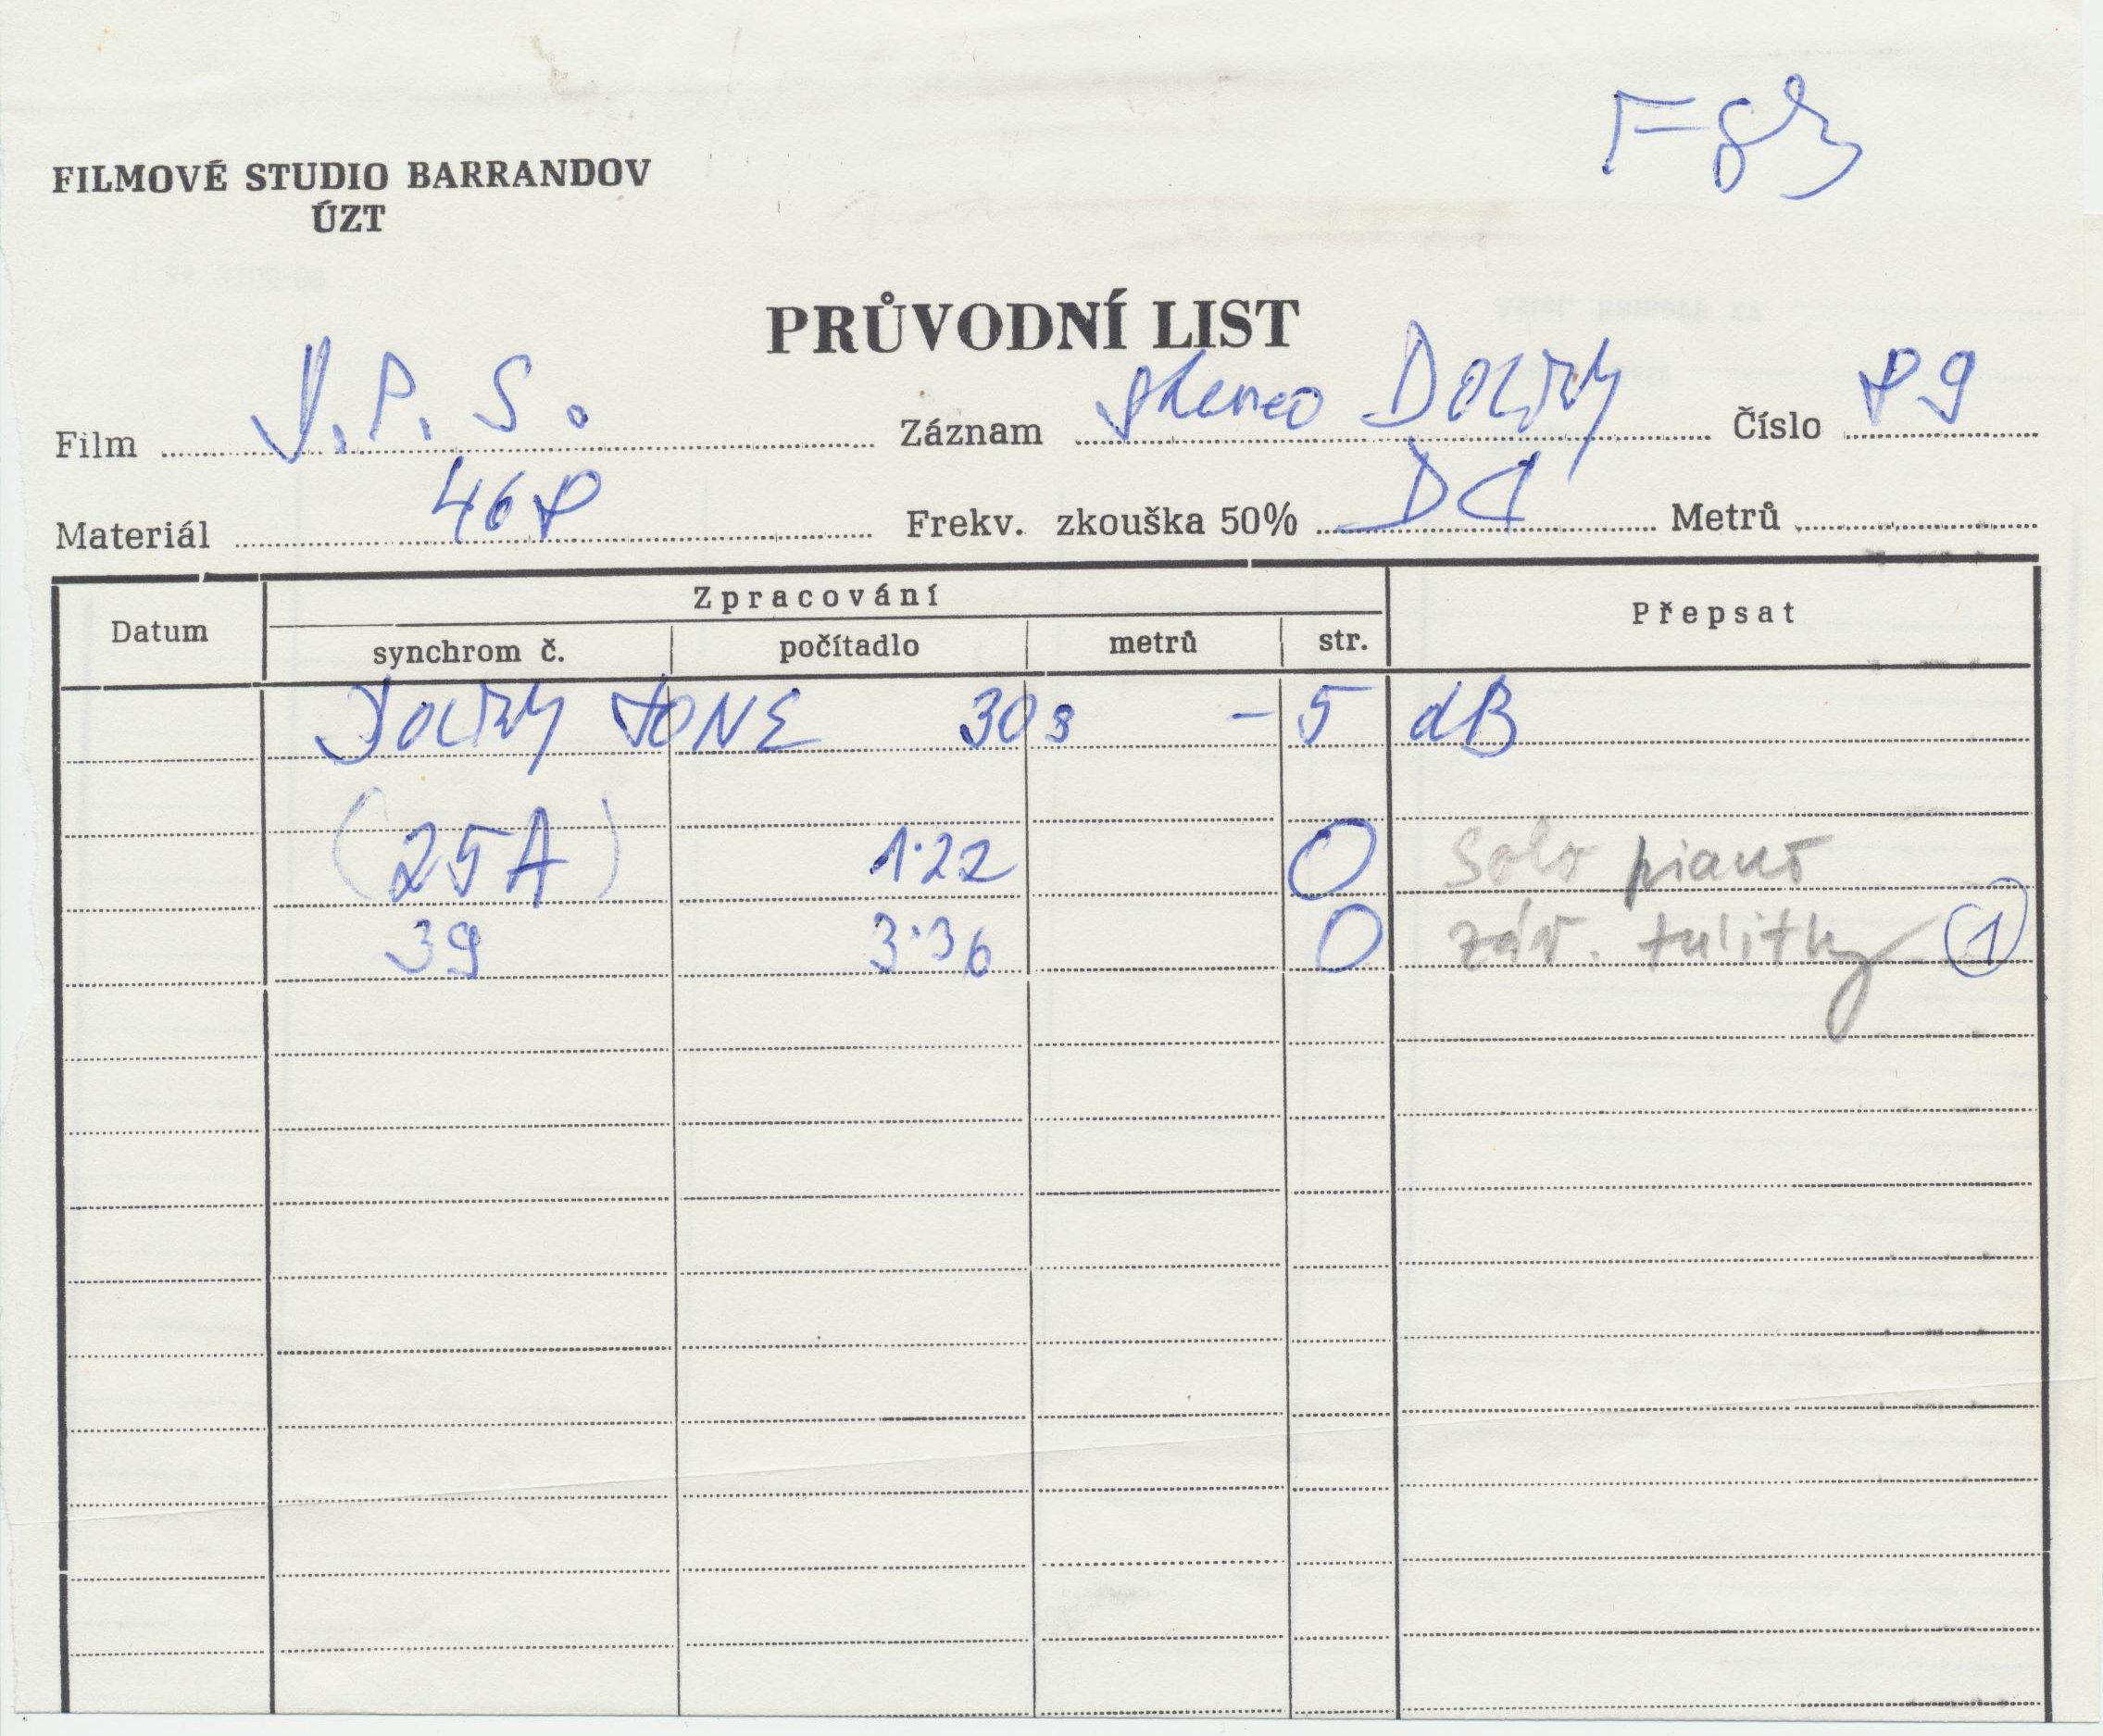 FILMOVÉ STUDIO BARRANDOV
ÚZT
PRŮVODNÍ LIST
Film V.P.S. Záznam stereo DOLBY Číslo P9
Materiál 468 Frekv. zkouška 50%  Metrů
Datum Zpracování Přepsat
synchrom č. počítadlo metrů str.
DOLBY TONE 30s -5 dB
(25A) 1·22 0 Solo piano
39 3·36 0 záv. tulitky 1